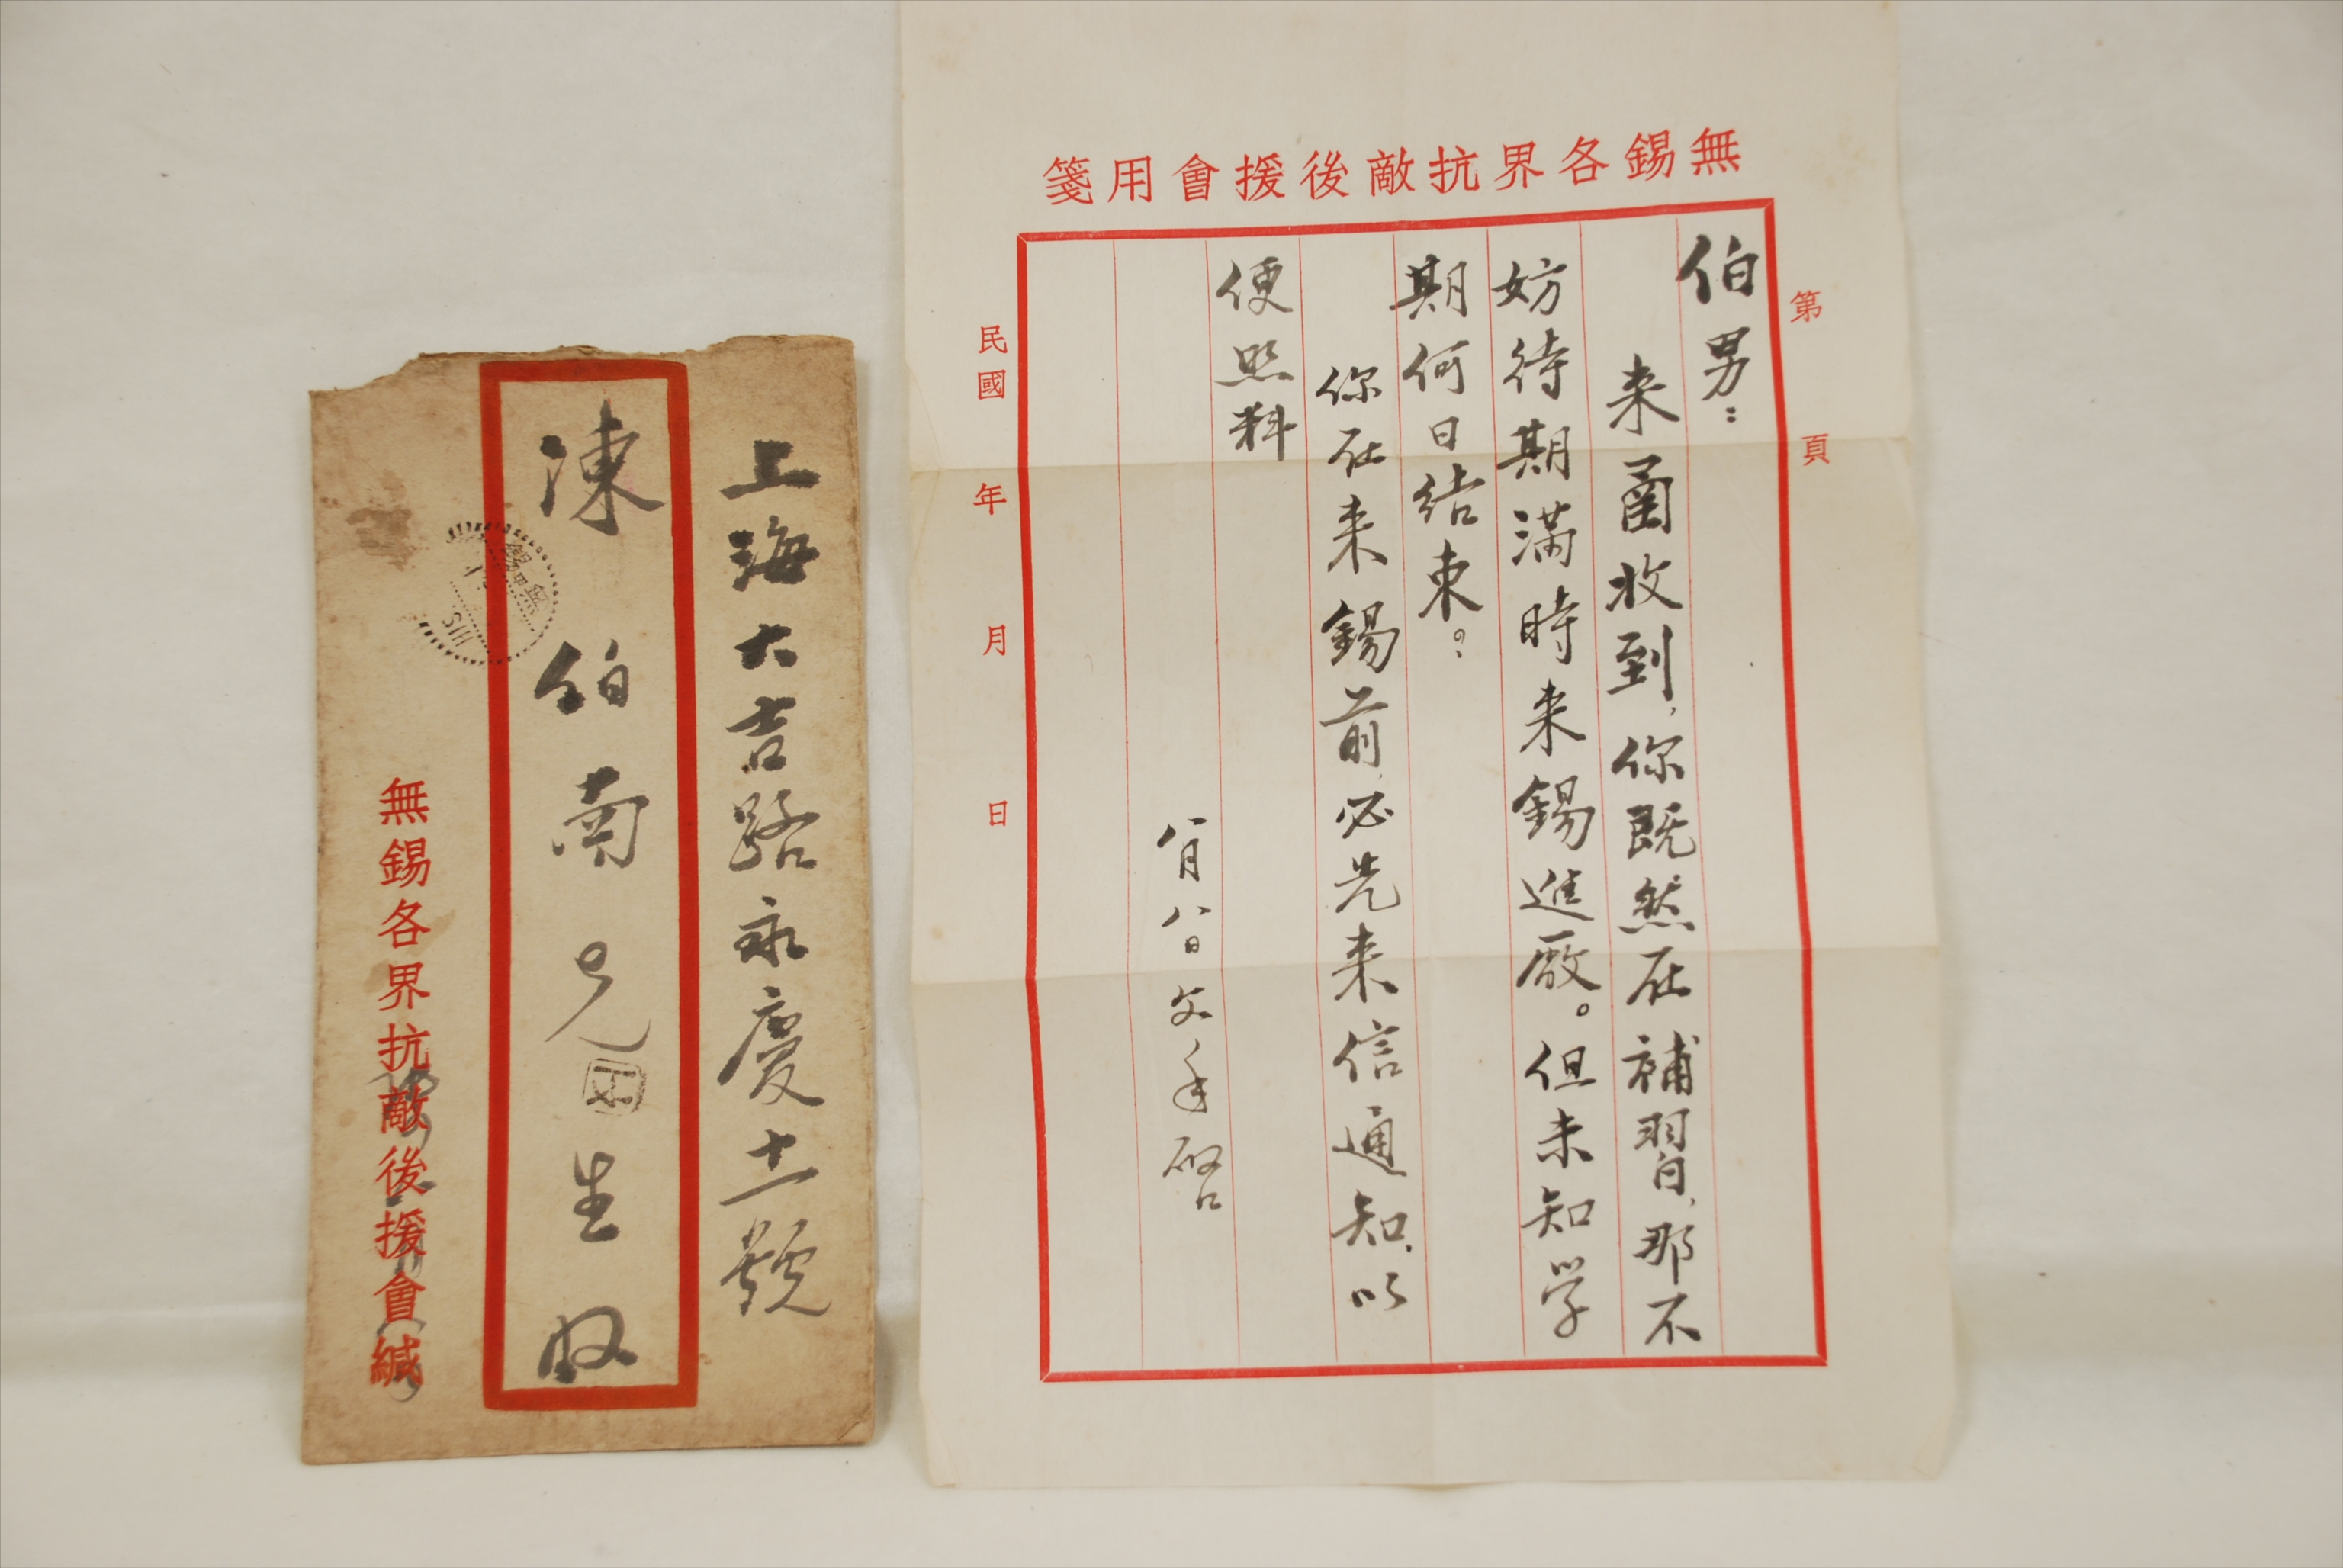 無錫各界抗敵後援會用箋
第 頁
伯男：
来函收到，你既然在補習，那不
妨待期滿時来錫進廠。但未知学
期何日结束。
你在来錫前，必先来信通知，以
便照料
八月八日父手啓
民國 年 月 日
上海大吉路永慶十一號
陳伯南先生收
無錫各界抗敵後援會緘